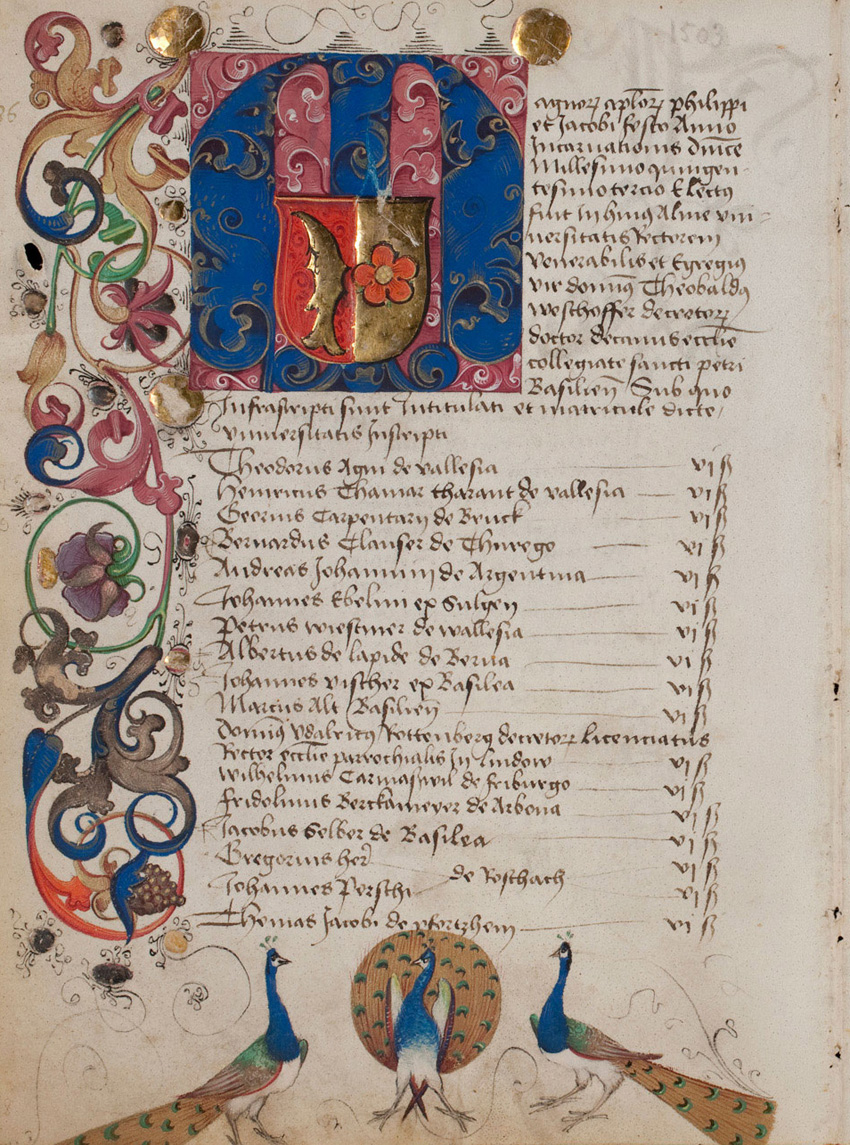 1503
agnorꝝ aplõrꝝ philippi
et Jacobi festo Anno
Incarnationis dnice
Millesimo quingen-
tesimo tercio Electus
fuit In huius Alme vni-
uersitatis Rectorem
venerabilis et Egregius
vir dominus Theobaldus
westhoffer decretorꝝ
doctor decanus ecclie
collegiate sancti petri
Basilien̄ Sub quo
Infrascripti sunt Intitulati et matricule dicte
vniuersitatis Inscripti
Theodorus Agni de vallesia vi ß
Heinricus Thamar tharant de vallesia vi ß
Georius Carpentarij de Bruck vi ß
Bernardus Clauser de Thurego vi ß
Andreas Johannin de Argentina vi ß
Johannes Ebelin ex Sulgen vi ß
Petrus wiestiner de wallesia vi ß
Albertus de lapide de Berna vi ß
Johannes vischer ex Basilea vi ß
Marcus Alt Basilien̄ vi ß
domin9 vdalricus Rottenberg decretorꝝ licenciatus
Rector ecclie parrochialis In lindow vi ß
wilhelmus Carmaswil de friburgo vi ß
fridolinus Berckameyer de Arbona vi ß
Jacobus Selber de Basilea vi ß
Gregorius her vi ß
de Roschach
Johannes Perschi vi ß
Thomas Jacobi de pfortzhem vi ß